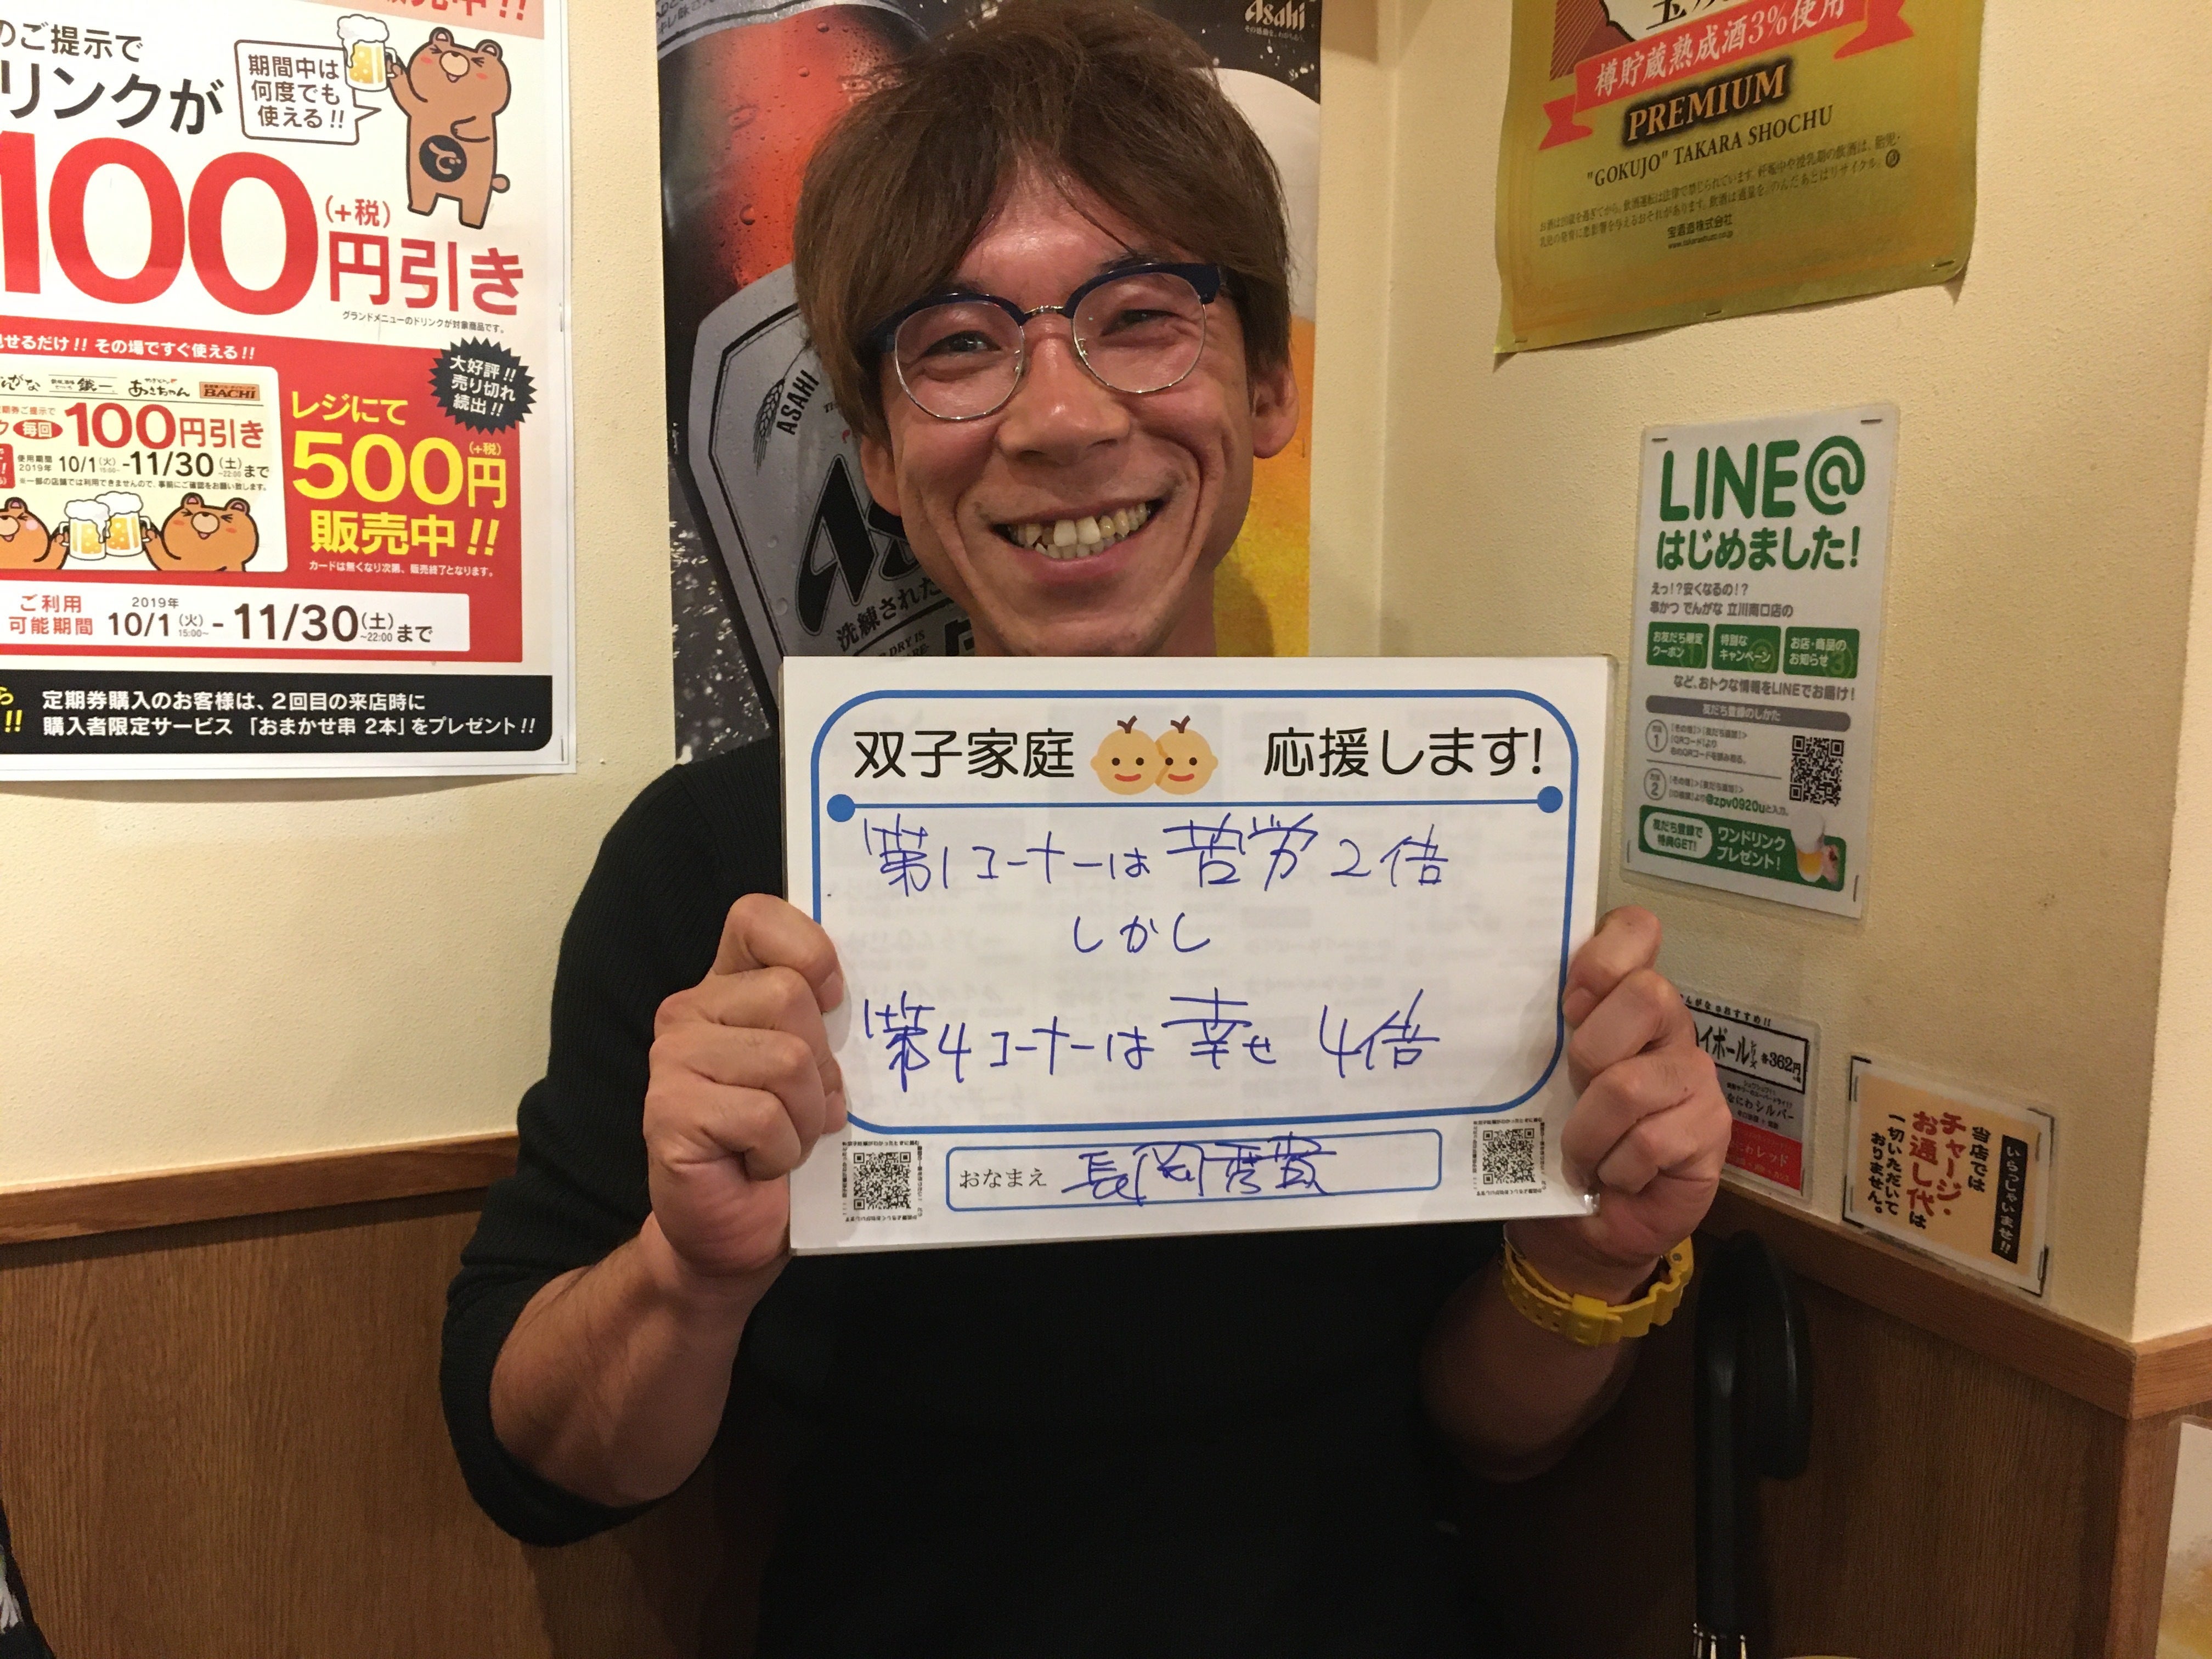 販売中!!
のご提示で
リンクが
期間中は
何度でも
使える!!
100
(+税)
円引き
グランドメニューのドリンクが対象商品です。
見せるだけ!! その場ですぐ使える!!
大好評!!
売り切れ
続出!!
BACHI
毎回 100円引き
使用期間
2019年 10/1(火)-11/30(土)まで
15:00~ ~22:00
※一部の店舗では利用できませんので、事前にご確認をお願い致します。
レジにて
500円
(+税)
販売中!!
カードは無くなり次第、販売終了となります。
ご利用
可能期間
2019年
10/1(火)-11/30(土)まで
15:00~ ~22:00
定期券購入のお客様は、2回目の来店時に
購入者限定サービス「おまかせ串 2本」をプレゼント!!
Asahi
ASAHI
洗練された
樽貯蔵熟成酒3%使用
PREMIUM
"GOKUJO" TAKARA SHOCHU
宝酒造株式会社
LINE@
はじめました!
えっ!?安くなるの!?
串かつ でんがな 立川南口店の
お友だち限定
クーポン
特別な
キャンペーン
お店・商品の
お知らせ
など、おトクな情報をLINEでお届け!
友だち登録のしかた
@zpv0920uと入力。
友だち登録で
特典GET!
ワンドリンク
プレゼント!
双子家庭 応援します!
第1コーナーは苦労2倍
しかし
第4コーナーは幸せ4倍
おなまえ 長岡秀貴
各362円
なにわシルバー
いらっしゃいませ!!
当店では
チャージ・
お通し代は
一切いただいて
おりません。